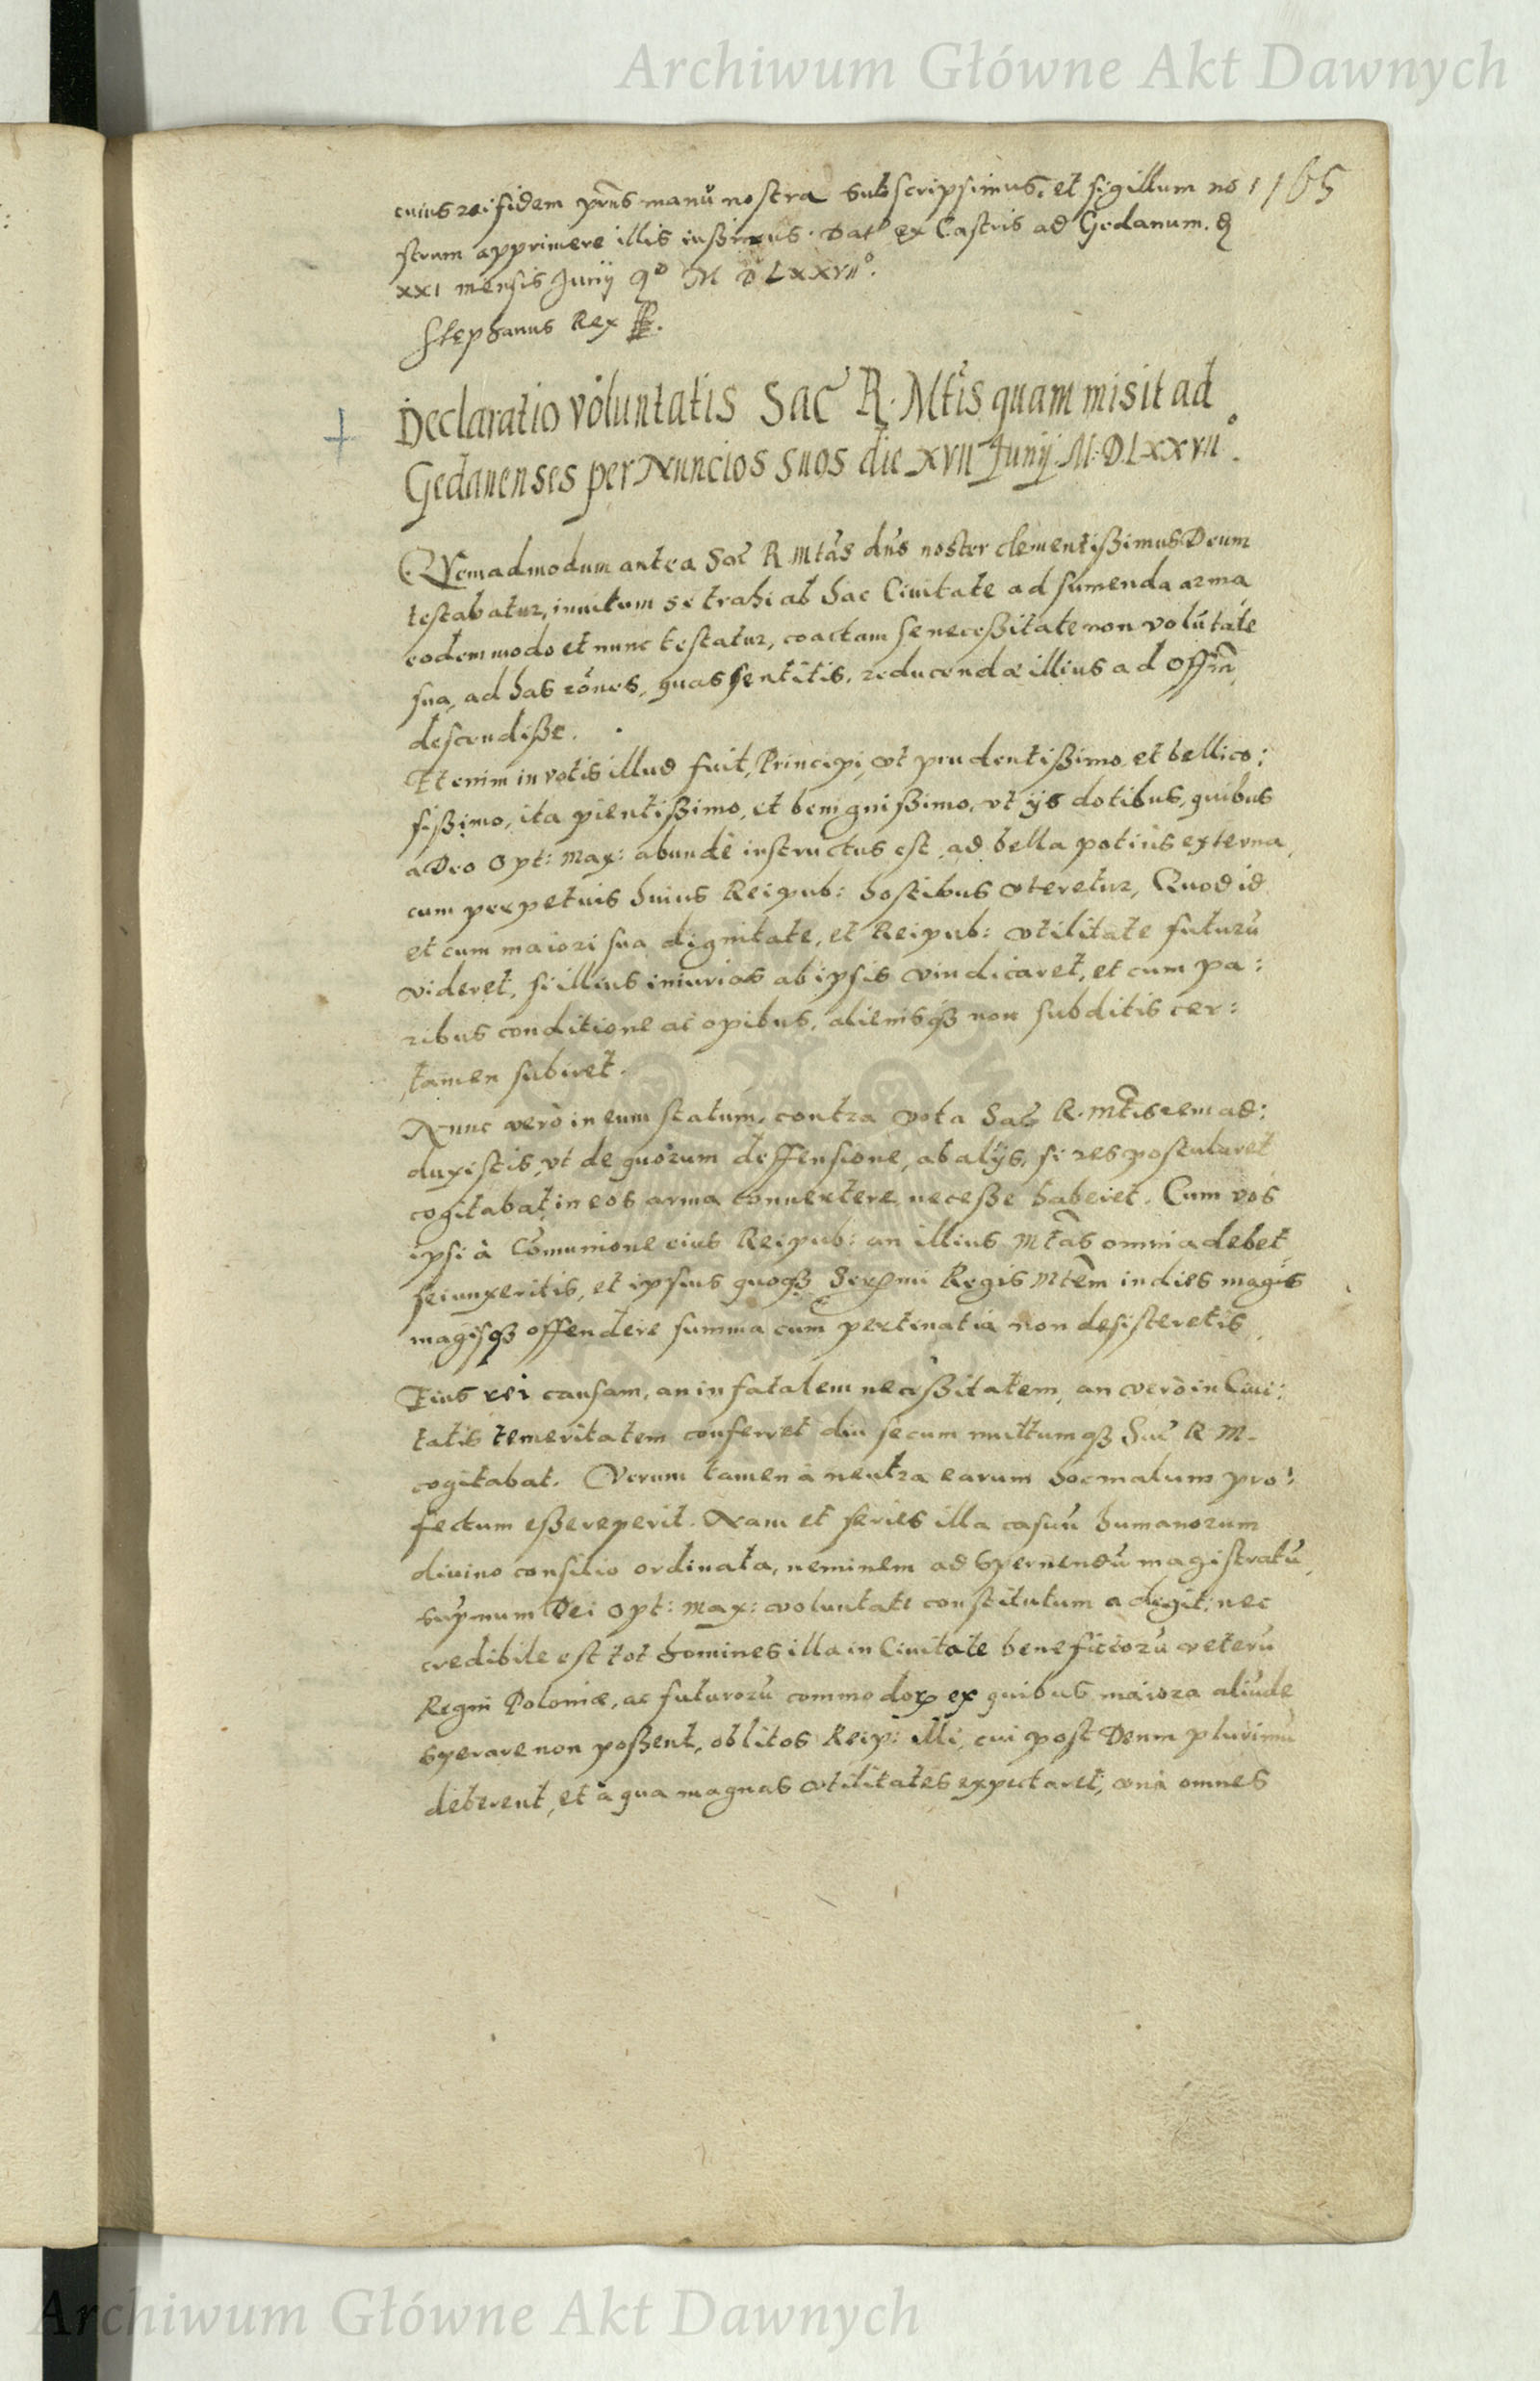 Archiwum Główne Akt Dawnych
165
cuius rei fidem pr̃ns manũ nostra subscripsimus, et sigillum no
strum apprimere illis iußimus. Datᵒ ex Castris ad Gedanum. 
XXI mensis Junij Aᵒ M D LXXVIIᵒ.
Stephanus Rex
Declaratio voluntatis Sac̃ R. Mt̃is quam misit ad
Gedanenses per Nuncios suos die XVII Junij M.D.LXXVIIᵒ.
QVemadmodum antea Sac̃ R Mtãs dñs noster clementißimus Deum
testabatur, inuitum se trahi ab hac Ciuitate ad sumenda arma,
eodem modo et nunc testatur, coactam se neceßitate non volũtate
sua, ad has rõnes, quas sentitis, reducendæ illius ad Offm̃,
descendiße.
Etenim in votis illud fuit, Principi, vt prudentißimo et bellico:
sißimo, ita pientißimo, et benignißimo, vt ijs dotibus, quibus
a Deo Opt: Max: abundè instructus est, ad bella potius externa,
cum perpetuis huius Reipub: hostibus vteretur, Quod id
et cum maiori sua dignitate, et Reipub: vtilitate futurũ
videret, si illius iniurias ab ipsis vindicaret, et cum pa:
ribus conditione ac opibus, alienisq̃ non subditis cer:
tamen subiret.
Nunc verò in eum statum, contra vota Sac̃ R. Mt̃is rem ad:
duxistis, vt de quorum deffensione, ab alijs, si res postularet
cogitabat, in eos arma conuertere neceße haberet. Cum vos
ipsi à Cõmunione eius Reipub: an illius Mtãs omnia debet,
seiunxeritis, et ipsius quoq̃ Serẽmi Regis Mtẽm indies magis
magisq̃ offendere summa cum pertinatia non desisteretis.
Eius rei causam, an in fatalem neceßitatem, an verò in Ciui:
tatis temeritatem conferret diu secum multumq̃ Sac̃ R. M.
cogitabat. Verum tamen à neutra earum hoc malum pro:
fectum eße reperit. Nam et series illa casuũ humanorum
diuino consilio ordinata, neminem ad spernendũ magistratũ,
sup̃mum Dei Opt: Max: voluntate constitutum adegit: nec
credibile est tot homines illa in Ciuitate beneficiorũ veterũ
Regni Poloniæ, ac futurorũ commodoꝝ ex quibus maiora aliũde
sperare non poßent, oblitos Reip: illi, cui post Deum plurimũ
deberent, et à qua magnas vtilitates expectaret, vnà omnes
Archiwum Główne Akt Dawnych